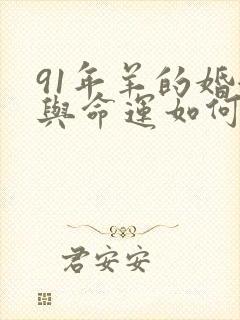 91年羊的婚
與命運如何
君安安